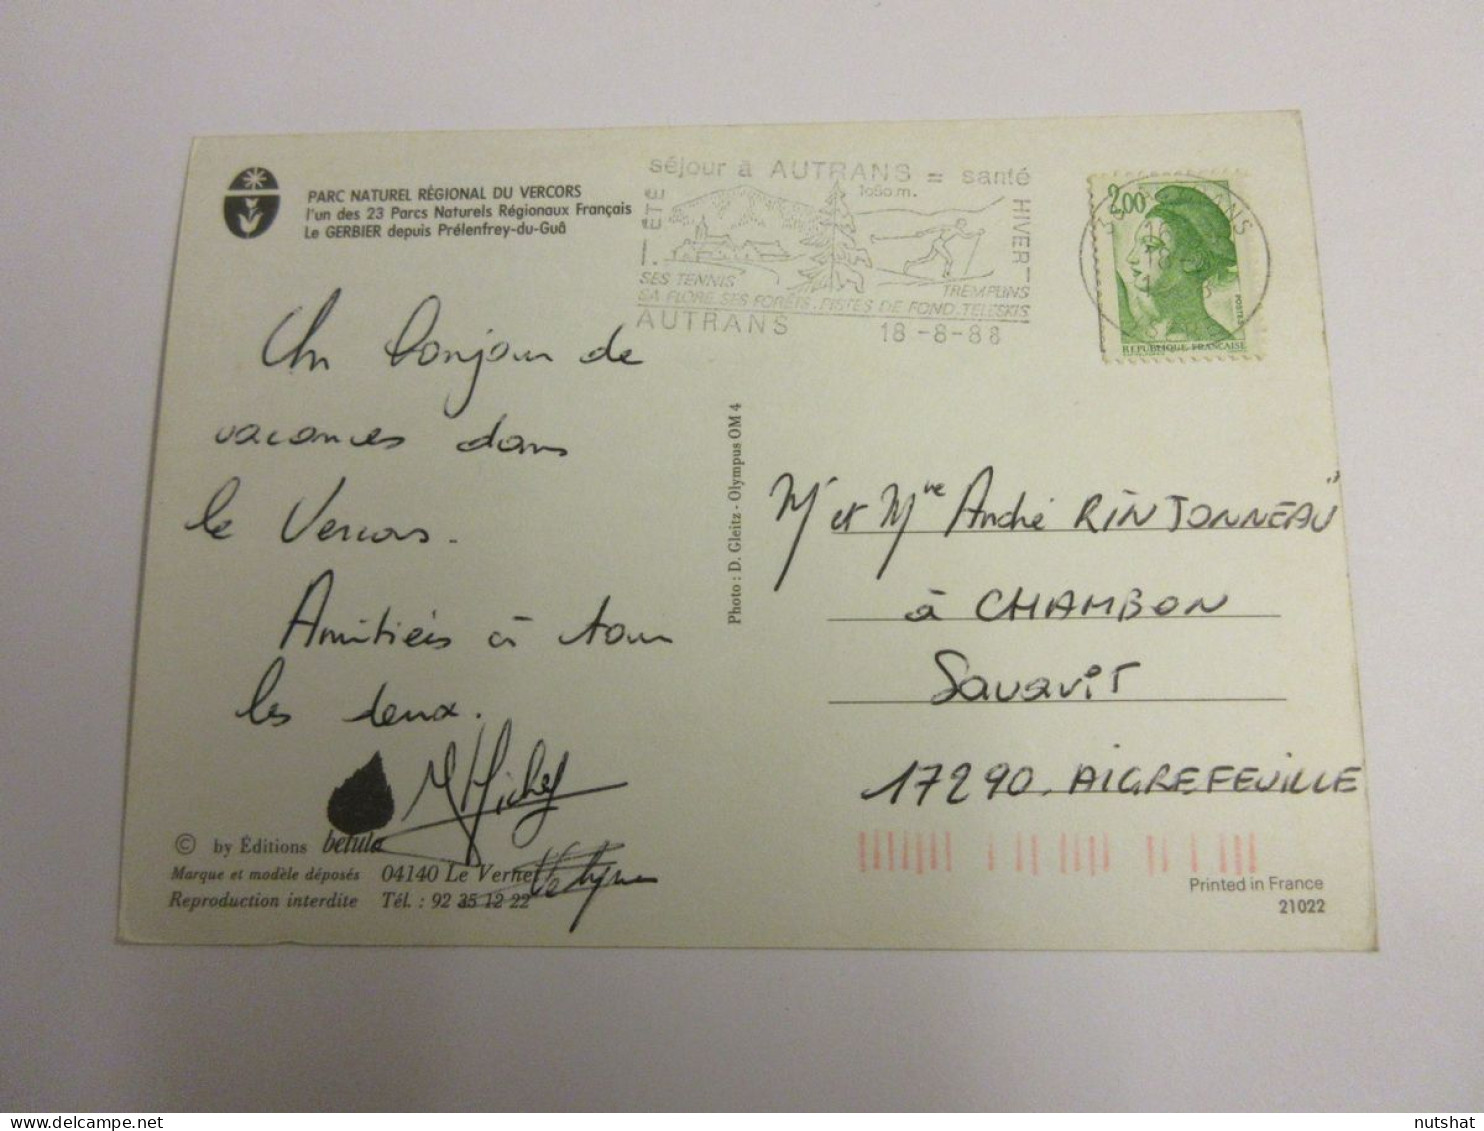 PARC NATUREL RÉGIONAL DU VERCORS
l'un des 23 Parcs Naturels Régionaux Français
Le GERBIER depuis Prélenfrey-du-Guâ
séjour à AUTRANS = santé
1050 m.
ÉTÉ
HIVER
SES TENNIS
TREMPLINS
SA FLORE. SES FORÊTS. PISTES DE FOND. TÉLÉSKIS
AUTRANS 18-8-88
2,00
POSTES
REPUBLIQUE FRANÇAISE
Un bonjour de
vacances dans
le Vercors.
Amitiés à tous
les deux.
Michel
Photo : D. Gleitz - Olympus OM 4
Mr et Mme André RINJONNEAU
à CHAMBON
17290. AIGREFEUILLE
© by Éditions betula
Marque et modèle déposés 04140 Le Vernet
Reproduction interdite Tél. : 92 35 12 22
Printed in France
21022
nutshat